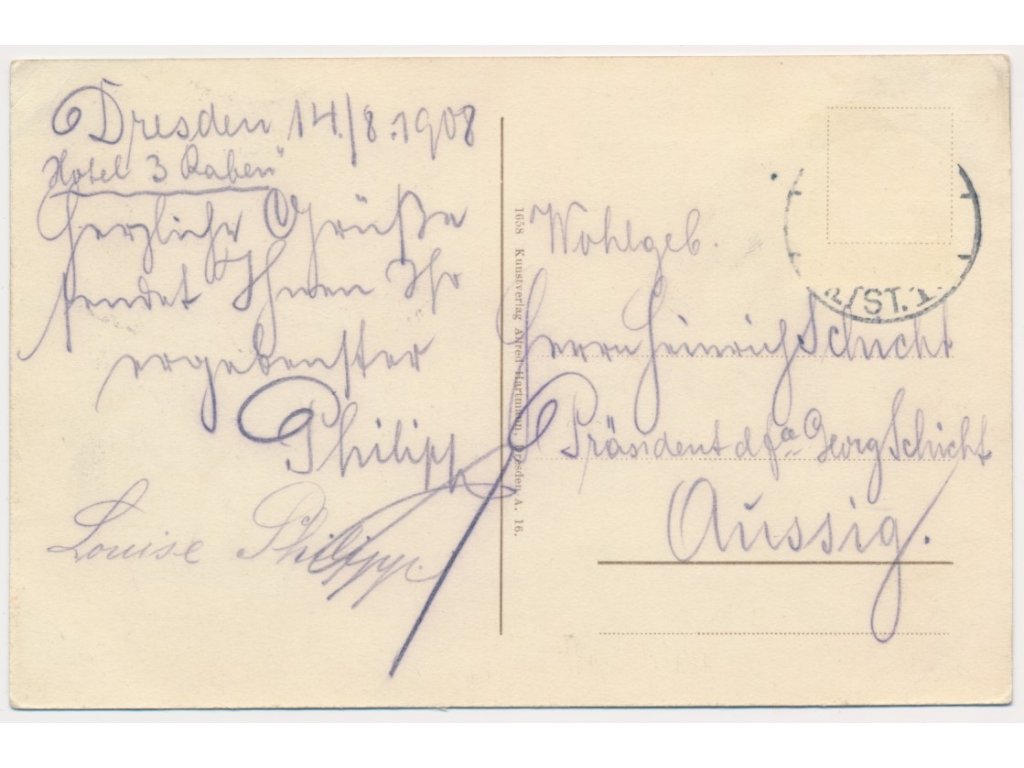 Dresden 14./8.1908
Hotel 3 Raben"
Herzliche Grüße
sendet Ihnen Ihr
ergebenster
Philipp
Louise Philipp.
1658 Kunstverlag Alfred Hartmann, Dresden A. 16.
Wohlgeb.
Herrn Heinrich Schicht
Präsident d. Fa Georg Schicht
Aussig.
/ST. 1